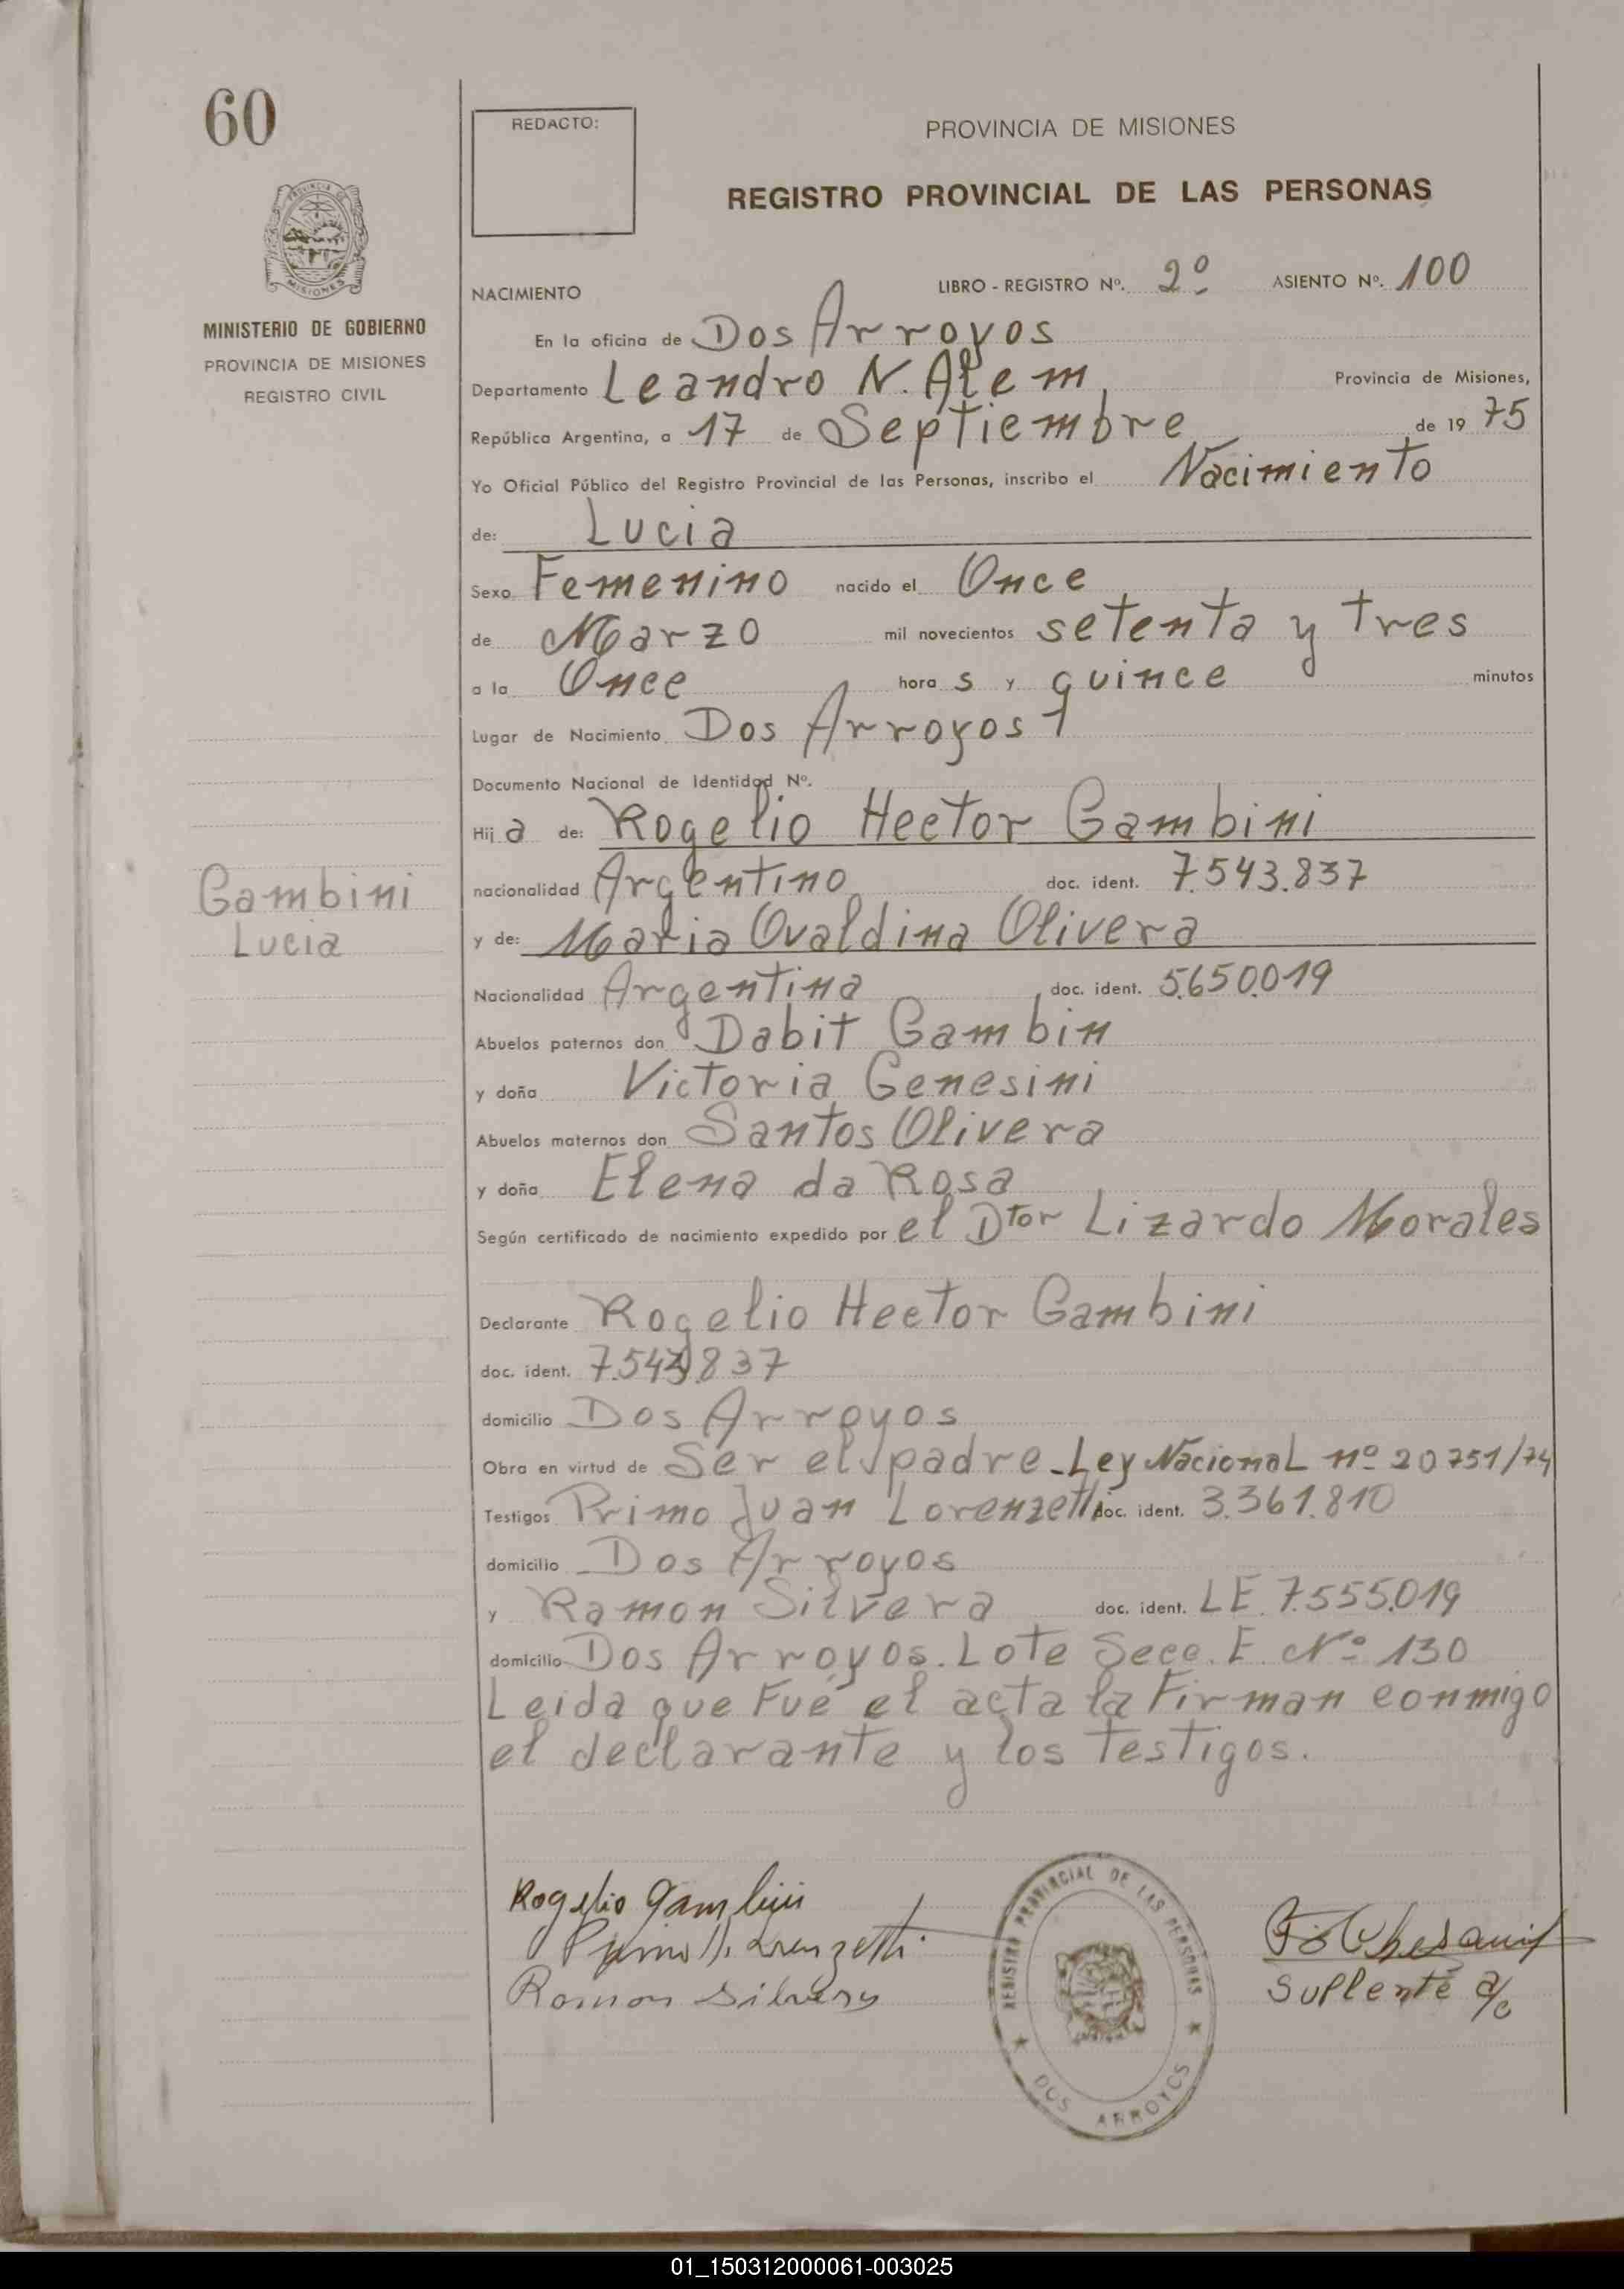 60
REDACTO:
PROVINCIA DE MISIONES
REGISTRO PROVINCIAL DE LAS PERSONAS
PROVINCIA DE
MISIONES
MINISTERIO DE GOBIERNO
PROVINCIA DE MISIONES
REGISTRO CIVIL
NACIMIENTO LIBRO - REGISTRO Nº. 2º ASIENTO Nº. 100
En la oficina de Dos Arroyos
Departamento Leandro N. Alem, Provincia de Misiones,
República Argentina, a 17 de Septiembre de 19 75
Yo Oficial Público del Registro Provincial de las Personas, inscribo el Nacimiento
de: Lucia
Sexo Femenino nacido el Once
de Marzo mil novecientos setenta y tres
a la Once hora s y quince minutos
Lugar de Nacimiento Dos Arroyos
Documento Nacional de Identidad Nº.
Hij a de: Rogelio Hector Gambini
nacionalidad Argentino doc. ident. 7.543.837
y de: Maria Ovaldina Olivera
Nacionalidad Argentina doc. ident. 5.650.019
Abuelos paternos don Dabit Gambin
y doña Victoria Genesini
Abuelos maternos don Santos Olivera
y doña Elena da Rosa
Según certificado de nacimiento expedido por el Dtor Lizardo Morales
Declarante Rogelio Hector Gambini
doc. ident. 7.543.837
domicilio Dos Arroyos
Obra en virtud de Ser el padre - Ley Nacional nº 20751/74
Testigos Primo Juan Lorenzetti doc. ident. 3.361.810
domicilio Dos Arroyos
y Ramon Silvera doc. ident. LE. 7.555.019
domicilio Dos Arroyos. Lote Secc. E. Nº 130
Leida que Fué el acta la Firman conmigo
el declarante y los Testigos.
Gambini
Lucia
Rogelio Gambini
Primo J. Lorenzetti
Ramon Silvera
REGISTRO PROVINCIAL DE LAS PERSONAS
DOS ARROYOS
Suplente a/c
01_150312000061-003025